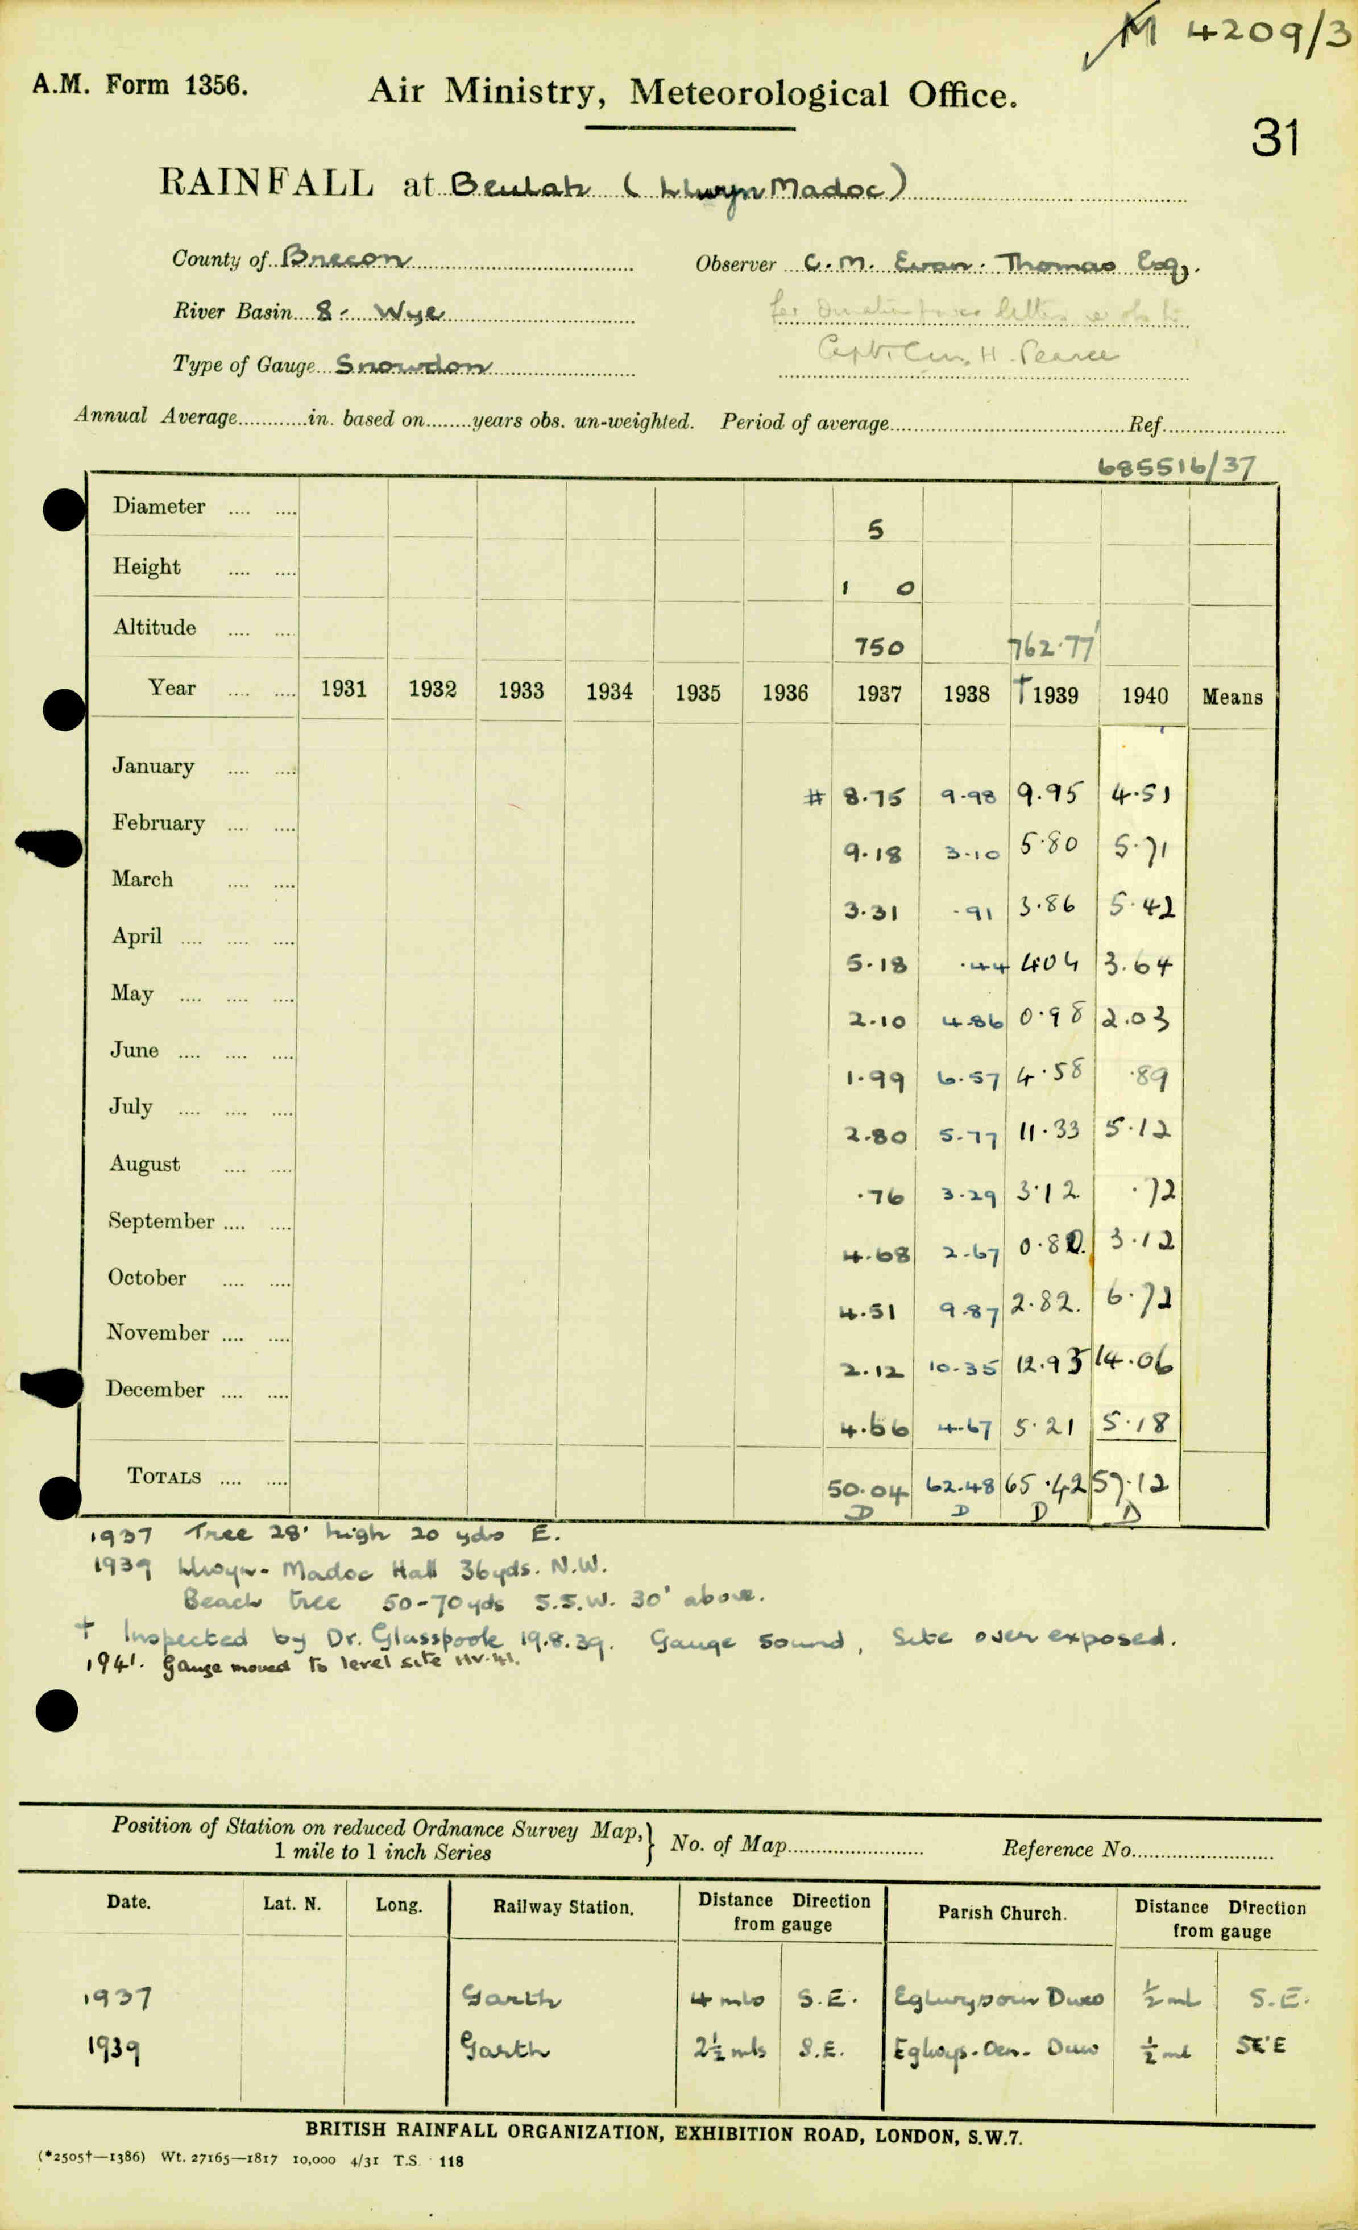 M 4209/3
A.M. Form 1356. Air Ministry, Meteorological Office.
31
RAINFALL at Beulah (Llwyn Madoc)
County of Brecon Observer C.M. Evan-Thomas Esq.
River Basin 8. Wye letter
Type of Gauge Snowdon Capt. H. Pearce
Annual Average in. based on years obs. un-weighted. Period of average Ref.
685516/37
Diameter 5
Height 1 0
Altitude 750 762.77'
Year 1931 1932 1933 1934 1935 1936 1937 1938 †1939 1940 Means
January # 8.75 9.98 9.95 4.51
February 9.18 3.10 5.80 5.71
March 3.31 .91 3.86 5.42
April 5.18 .44 4.04 3.64
May 2.10 4.86 0.98 2.03
June 1.99 6.57 4.58 .89
July 2.80 5.77 11.33 5.12
August .76 3.29 3.12 .72
September 4.68 2.67 0.80 3.12
October 4.51 9.87 2.82. 6.72
November 2.12 10.35 12.93 14.06
December 4.66 4.67 5.21 5.18
TOTALS 50.04 62.48 65.42 57.12
D D D D
1937 Tree 28' high 20 yds E.
1939 Llwyn-Madoc Hall 36yds. N.W.
Beach tree 50-70yds S.S.W. 30' above.
† Inspected by Dr. Glasspoole 19.8.39. Gauge sound, Site over exposed.
1941. Gauge moved to level site 11V.41.
Position of Station on reduced Ordnance Survey Map, } No. of Map Reference No.
1 mile to 1 inch Series
Date. Lat. N. Long. Railway Station. Distance Direction from gauge Parish Church. Distance Direction from gauge
1937 Garth 4 mls S.E. ½ ml S.E.
1939 Garth 2½ mls S.E. Eglwys-Oen-Duw ½ ml SE'E
BRITISH RAINFALL ORGANIZATION, EXHIBITION ROAD, LONDON, S.W.7.
(*2505†—1386) Wt. 27165—1817 10,000 4/31 T.S. 118